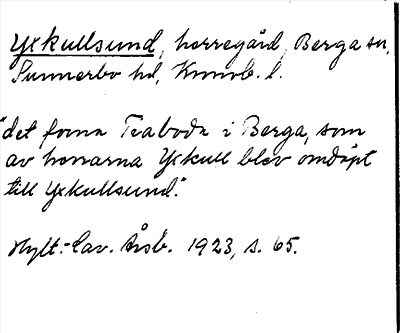 Yxkullsund, herregård, Berga sn,
Sunnerbo hd, Kronob. l.
"det forna Traboda i Berga, som
av herrarna Yxkull blev omdöpt
till Yxkullsund."
Hylt.-Cav. Årsb. 1923, s. 65.